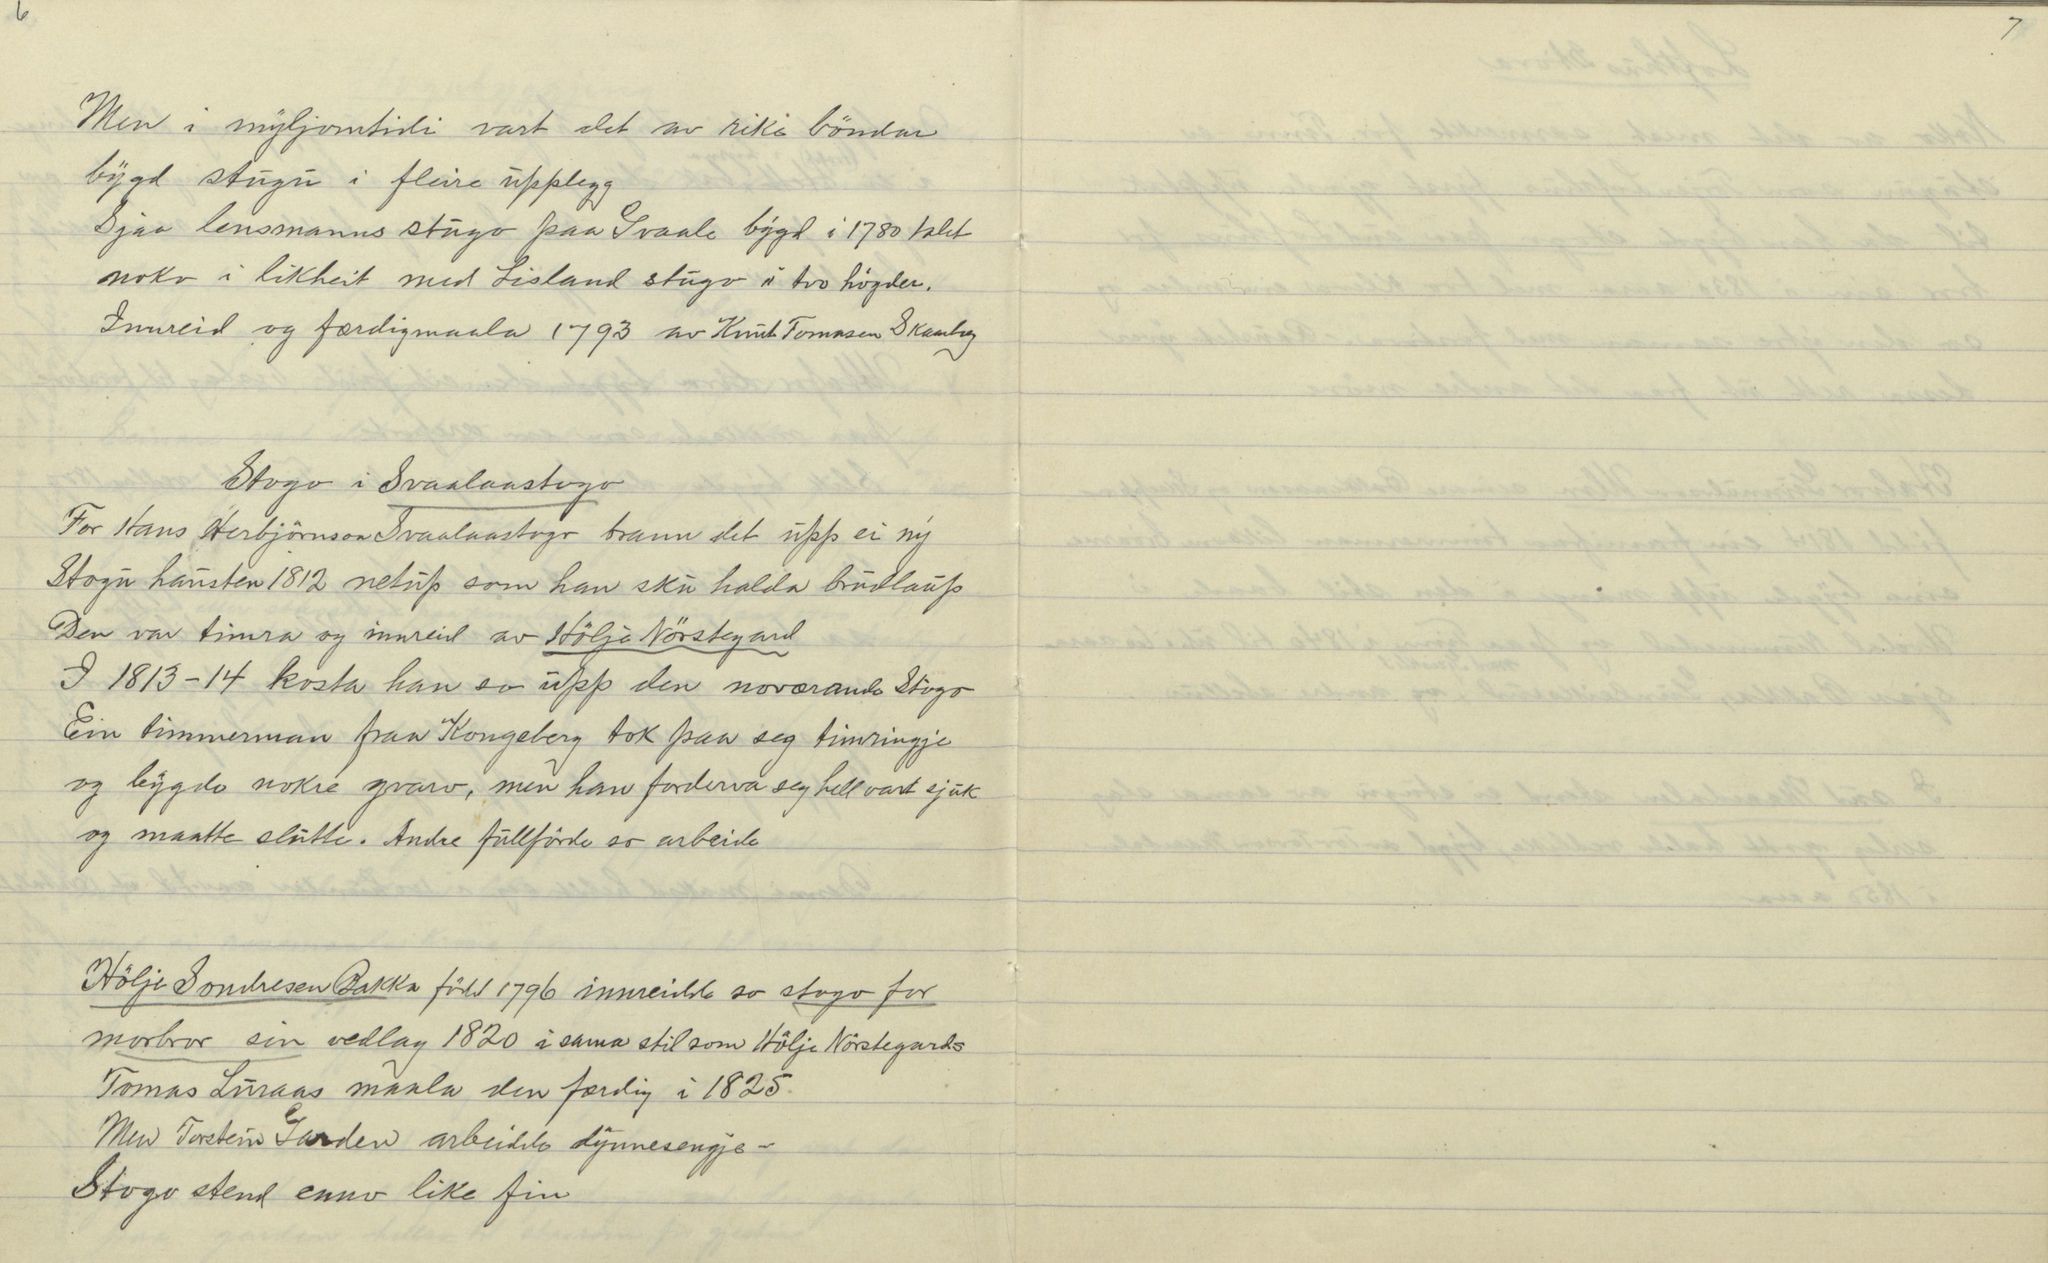 6
Men i myljomtidi vart det av rike böndar
bygd stugu i fleire upplegg
Sjaa lensmanns stugo paa Svaale bygd i 1780 talet
noko i likheit med Lisland stugo i two högder.
Innreid og færdigmaala 1793 av Knut Tomasen Skaarberg
Stogo i Svaalaastogo
For Hans Herbjörnson Svaalaastogo brann det upp ei ny
Stogu hausten 1812 netup som han sku halda brudlaup
Den var timra og innreid av Hölje Nörstegard
I 1813-14 kosta han so upp den noværande Stogo
Ein timmerman fraa Kongsberg tok paa seg timringje
og bygde nokre qvarv, men han forderva seg hell vart sjuk
og maatte slutte. Andre fullförde so arbeide
Hölje Sondresen Bakka född 1796 innreidde so stogo for
morbror sin vedlag 1820 i sama stil som Hölje Nörstegards
Tomas Luraas maala den færdig i 1825.
Men Torstein Garden arbeidde dynnesengje -
Stogo stend enno like fin
7